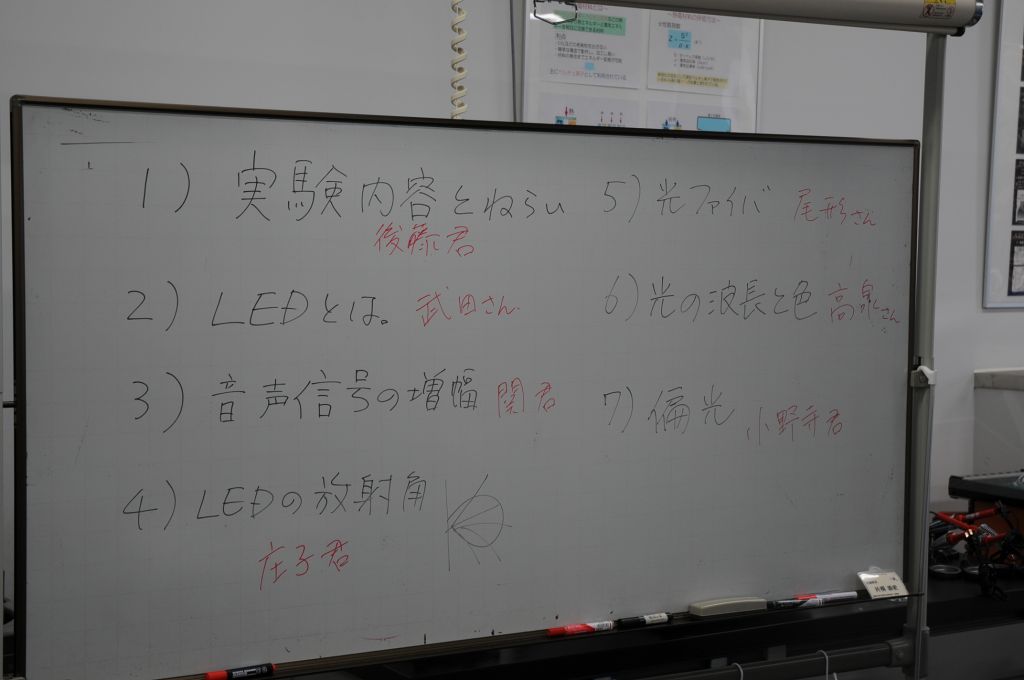 1) 実験内容とねらい
後藤君
2) LEDとは。 武田さん
3) 音声信号の増幅 関君
4) LEDの放射角
庄子君
5) 光ファイバ 尾形さん
6) 光の波長と色 高泉さん
7) 偏光 小野寺君